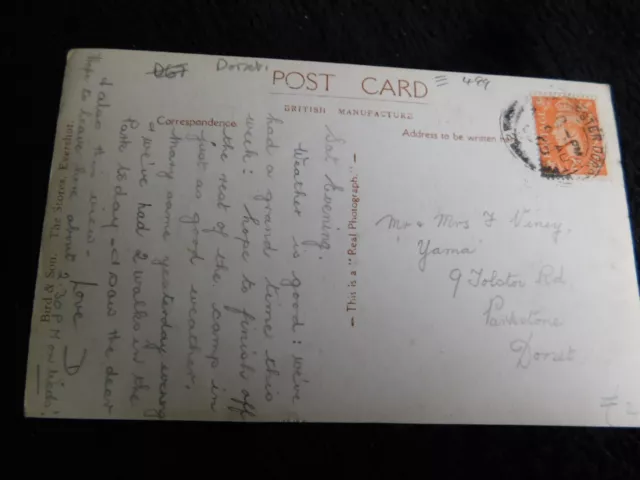 Dorset.
489
POST CARD
BRITISH MANUFACTURE
Correspondence
Address to be written
Sat Evening.
Weather is good: we've
had a grand time this
week: hope to finish off
the rest of the camp in
just as good weather.
Mary came yesterday evening
& we've had 2 walks in the
Park today - I saw the deer
I also
view -
hope to leave here about 2.30 P.M on Weds.
Love D
— This is a "Real Photograph." —
Mr & Mrs F Viney,
"Yama"
9 Tolstoi Rd
Parkstone
Dorset
Bird & Son, The Stores,